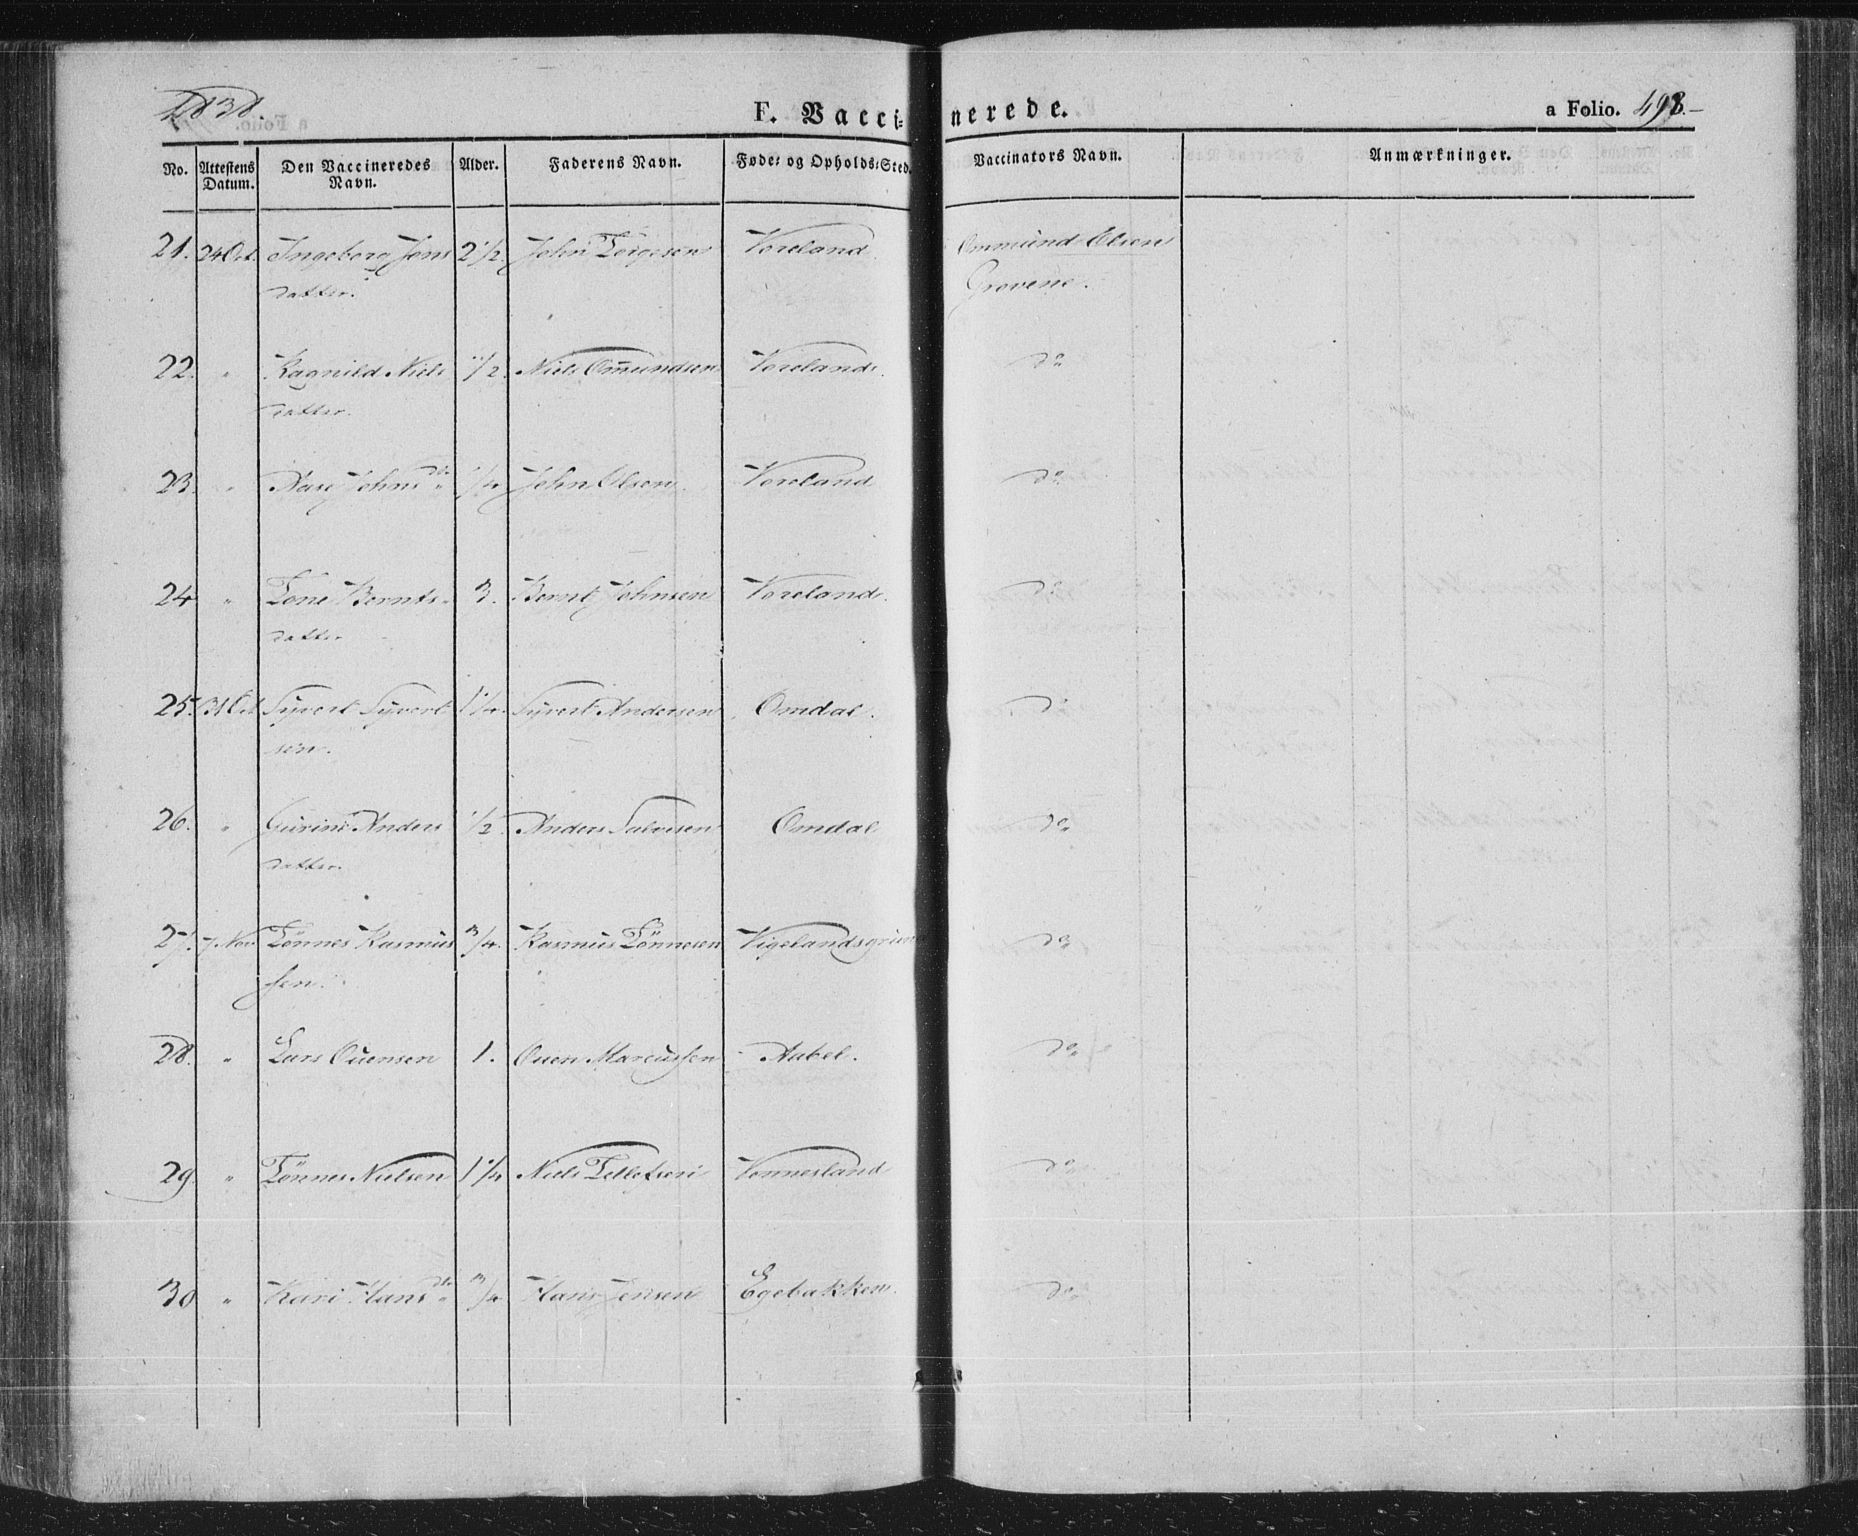 1838.
F. Vacci=nerede.
a Folio. 498.
No. Attestens Datum. Den Vaccineredes Navn. Alder. Faderens Navn. Føde= og Opholds=Sted. Vaccinators Navn. Anmærkninger.
21. 24 Oct. Ingeborg Jons 2 1/2. John Torgesen Voreland. Ommund Olsen
datter. Grovene.
22. " Ragnild Niels 1/2. Niels Om̄undsen Voreland. do
datter.
23. " Aase Johnsdtr 1/4 John Olsen. Voreland do
24 " Tone Bernts 3. Bernt Johnsen Voreland. do
datter
25. 31 Oct Syvert Syvert 1 1/4. Syvert Andersen Omdal. do
sen.
26. " Gurine Anders 1/2. Anders Salvesen Omdal do
datter.
27. 7 Nov Tönnes Rasmus 3/4. Rasmus Tönnesen Vigelandsgrun do
sen.
28. " Lars Ouensen 1. Ouen Marcussen Aabel. do
29 " Tönnes Nielsen 1 1/4 Niels Tellefsen Vonnesland do
30 " Kari Hansdtr 3/4 Hans Jensen Egebakken. do